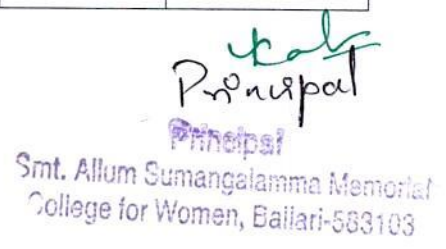 Principal
Principal
Smt. Allum Sumangalamma Memorial
College for Women, Ballari-583103